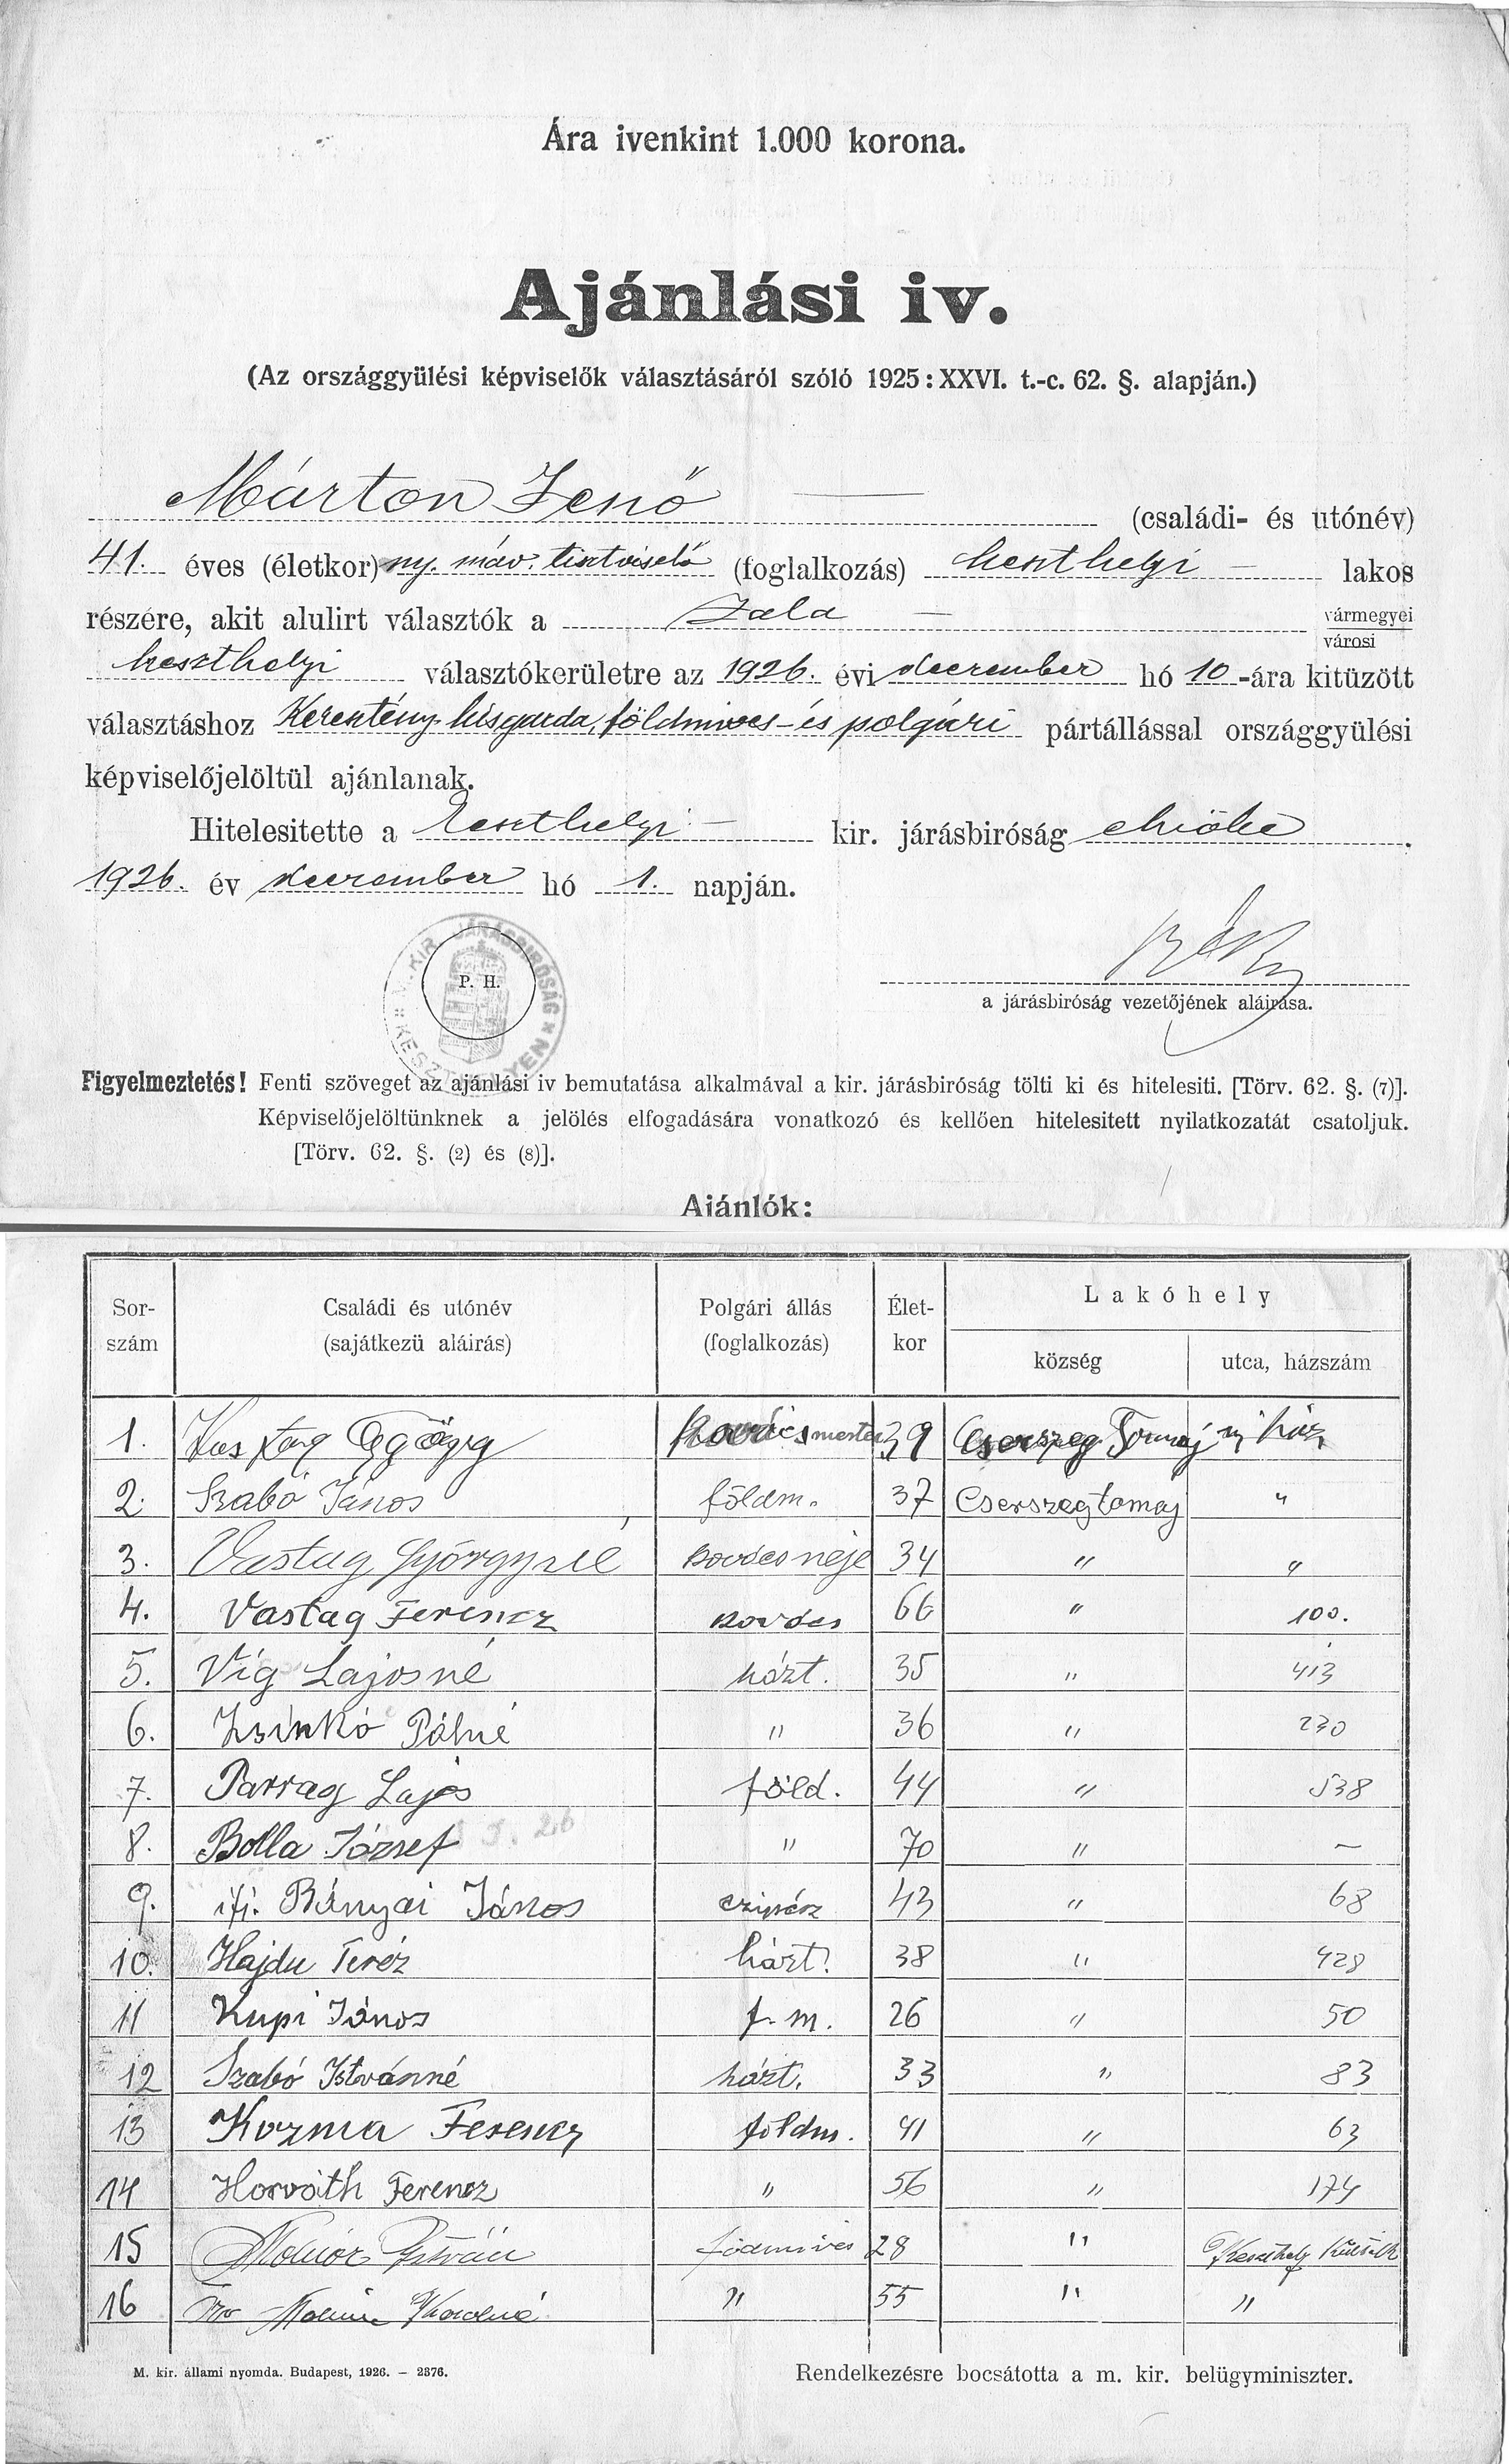 Ára ivenkint 1.000 korona.
Ajánlási iv.
(Az országgyülési képviselők választásáról szóló 1925 : XXVI. t.-c. 62. §. alapján.)
Márton Jenő (családi- és utónév)
41. éves (életkor) ny. máv. tisztviselő (foglalkozás) keszthelyi lakos
részére, akit alulirt választók a Zala vármegyei
városi
keszthelyi választókerületre az 1926. évi december hó 10-ára kitüzött
választáshoz Keresztény kisgazda, földmives- és polgári pártállással országgyülési
képviselőjelöltül ajánlanak.
Hitelesitette a keszthelyi kir. járásbiróság elnöke.
1926. év december hó 1. napján.
M. KIR. JÁRÁSBIRÓSÁG KESZTHELYEN
P. H.
a járásbiróság vezetőjének aláirása.
Figyelmeztetés! Fenti szöveget az ajánlási iv bemutatása alkalmával a kir. járásbiróság tölti ki és hitelesiti. [Törv. 62. §. (7)].
Képviselőjelöltünknek a jelölés elfogadására vonatkozó és kellően hitelesitett nyilatkozatát csatoljuk.
[Törv. 62. §. (2) és (8)].
Ajánlók:
Sor-szám Családi és utónév (sajátkezü aláirás) Polgári állás (foglalkozás) Élet-kor Lakóhely
község utca, házszám
1. Vastag György kovács mester 39 Cserszeg Tomaj uj ház
2. Szabó János földm. 37 Cserszegtomaj "
3. Vastag Györgyné kovács neje 34 " "
4. Vastag Ferencz kovács 66 " 100.
5. Vig Lajosné házt. 35 " 413
6. Zsinkó Pálné " 36 " 230
7. Parrag Lajos föld. 44 " 538
8. Bolla József " 70 " —
9. ifj. Bányai János czipész 43 " 68
10. Hajdu Teréz házt. 38 " 428
11 Kupi János f. m. 26 " 50
12 Szabó Istvánné házt. 33 " 83
13 Kozma Ferencz földm. 41 " 63
14 Horváth Ferencz " 56 " 174
15 Molnár István födmives 28 " Keszthely
16 Özv Molnár " 55 " "
M. kir. állami nyomda. Budapest, 1926. — 2376.
Rendelkezésre bocsátotta a m. kir. belügyminiszter.